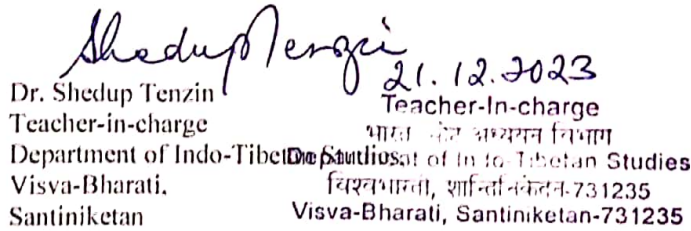 Shedup Tenzin
21.12.2023
Dr. Shedup Tenzin
Teacher-in-charge
Department of Indo-Tibetan Studies
Visva-Bharati,
Santiniketan
Teacher-In-charge
भारत अध्ययन विभाग
Department of Indo-Tibetan Studies
विश्वभारती, शान्तिनिकेतन-731235
Visva-Bharati, Santiniketan-731235